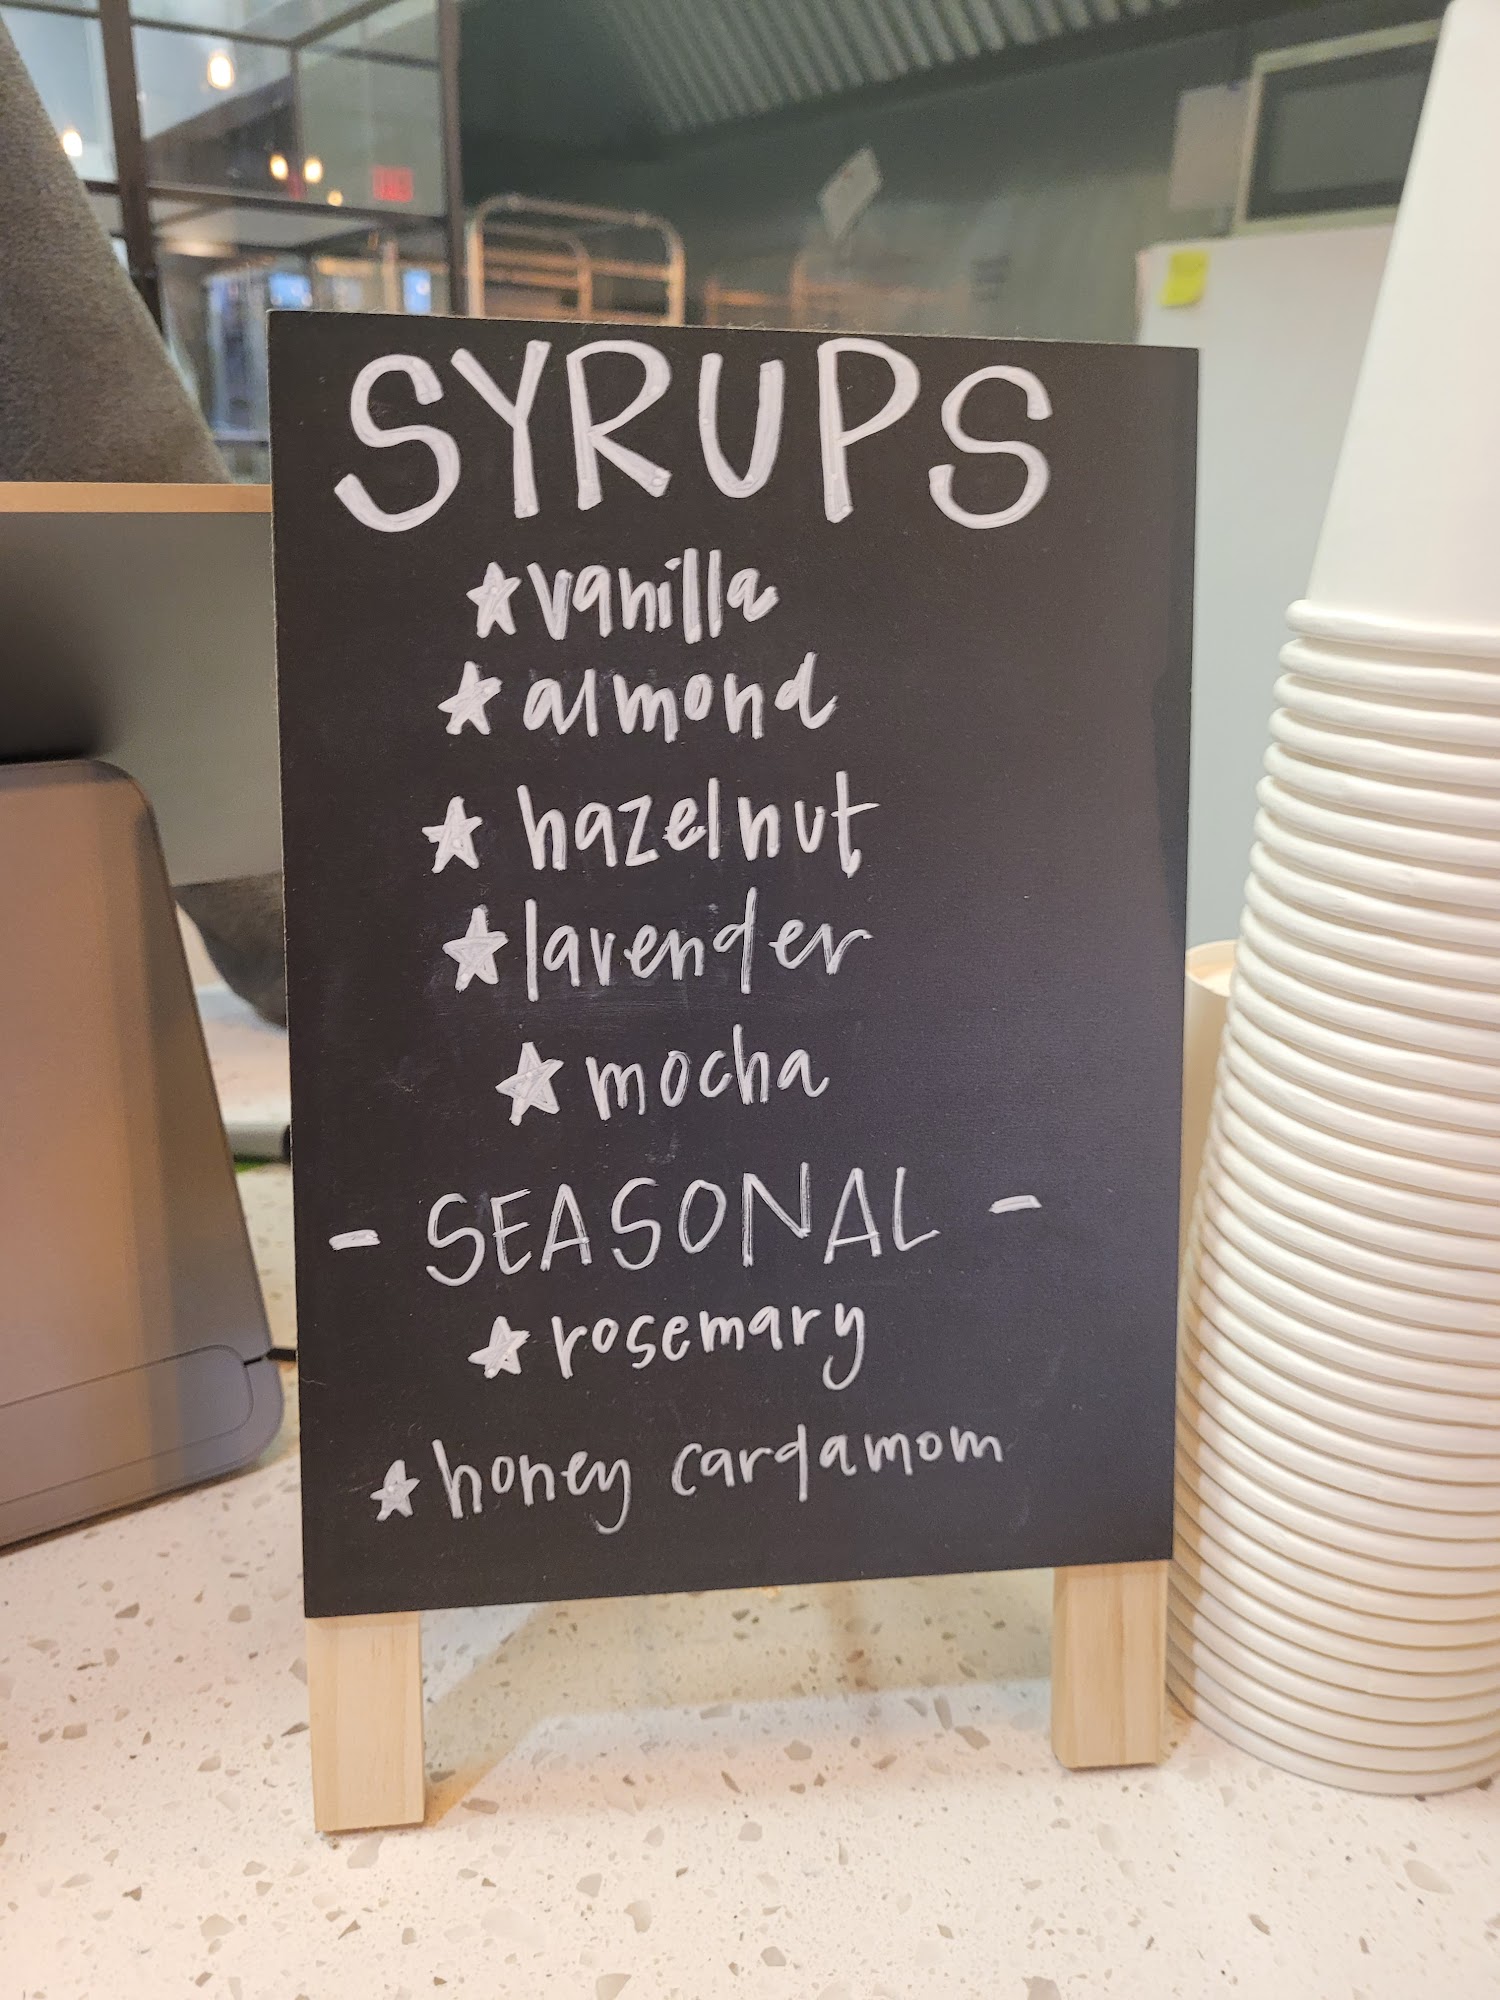 SYRUPS
★ vanilla
★ almond
★ hazelnut
★ lavender
★ mocha
- SEASONAL -
★ rosemary
★ honey cardamom